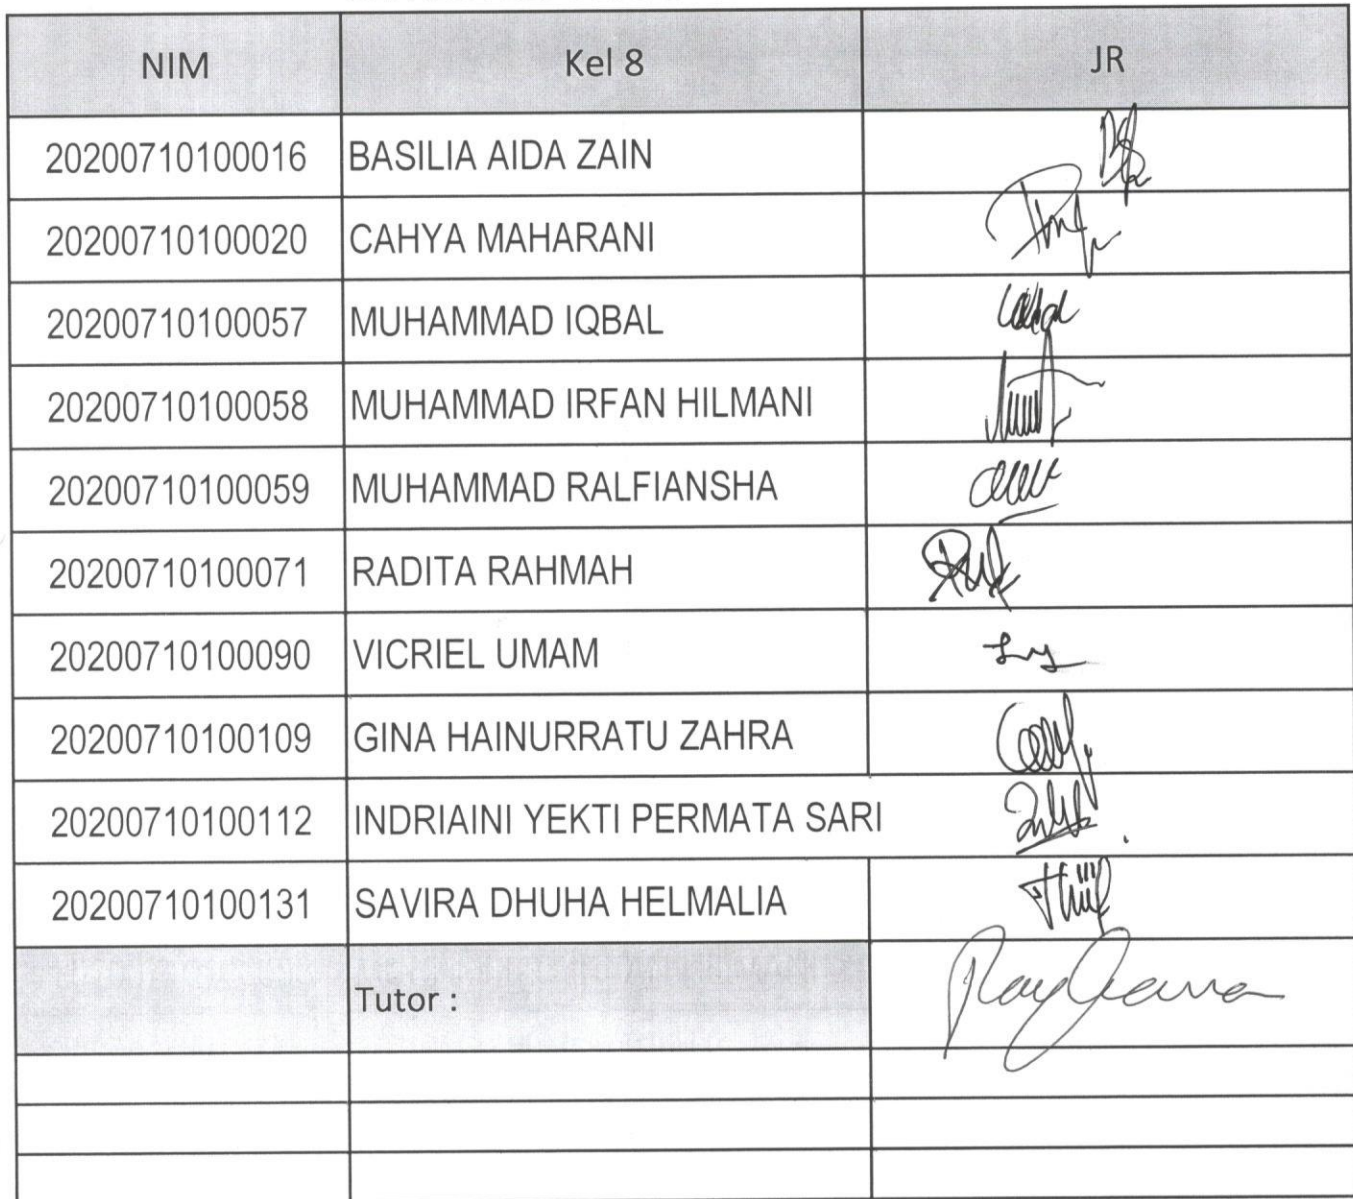 NIM Kel 8 JR
20200710100016 BASILIA AIDA ZAIN
20200710100020 CAHYA MAHARANI
20200710100057 MUHAMMAD IQBAL
20200710100058 MUHAMMAD IRFAN HILMANI
20200710100059 MUHAMMAD RALFIANSHA
20200710100071 RADITA RAHMAH
20200710100090 VICRIEL UMAM
20200710100109 GINA HAINURRATU ZAHRA
20200710100112 INDRIAINI YEKTI PERMATA SARI
20200710100131 SAVIRA DHUHA HELMALIA
Tutor :